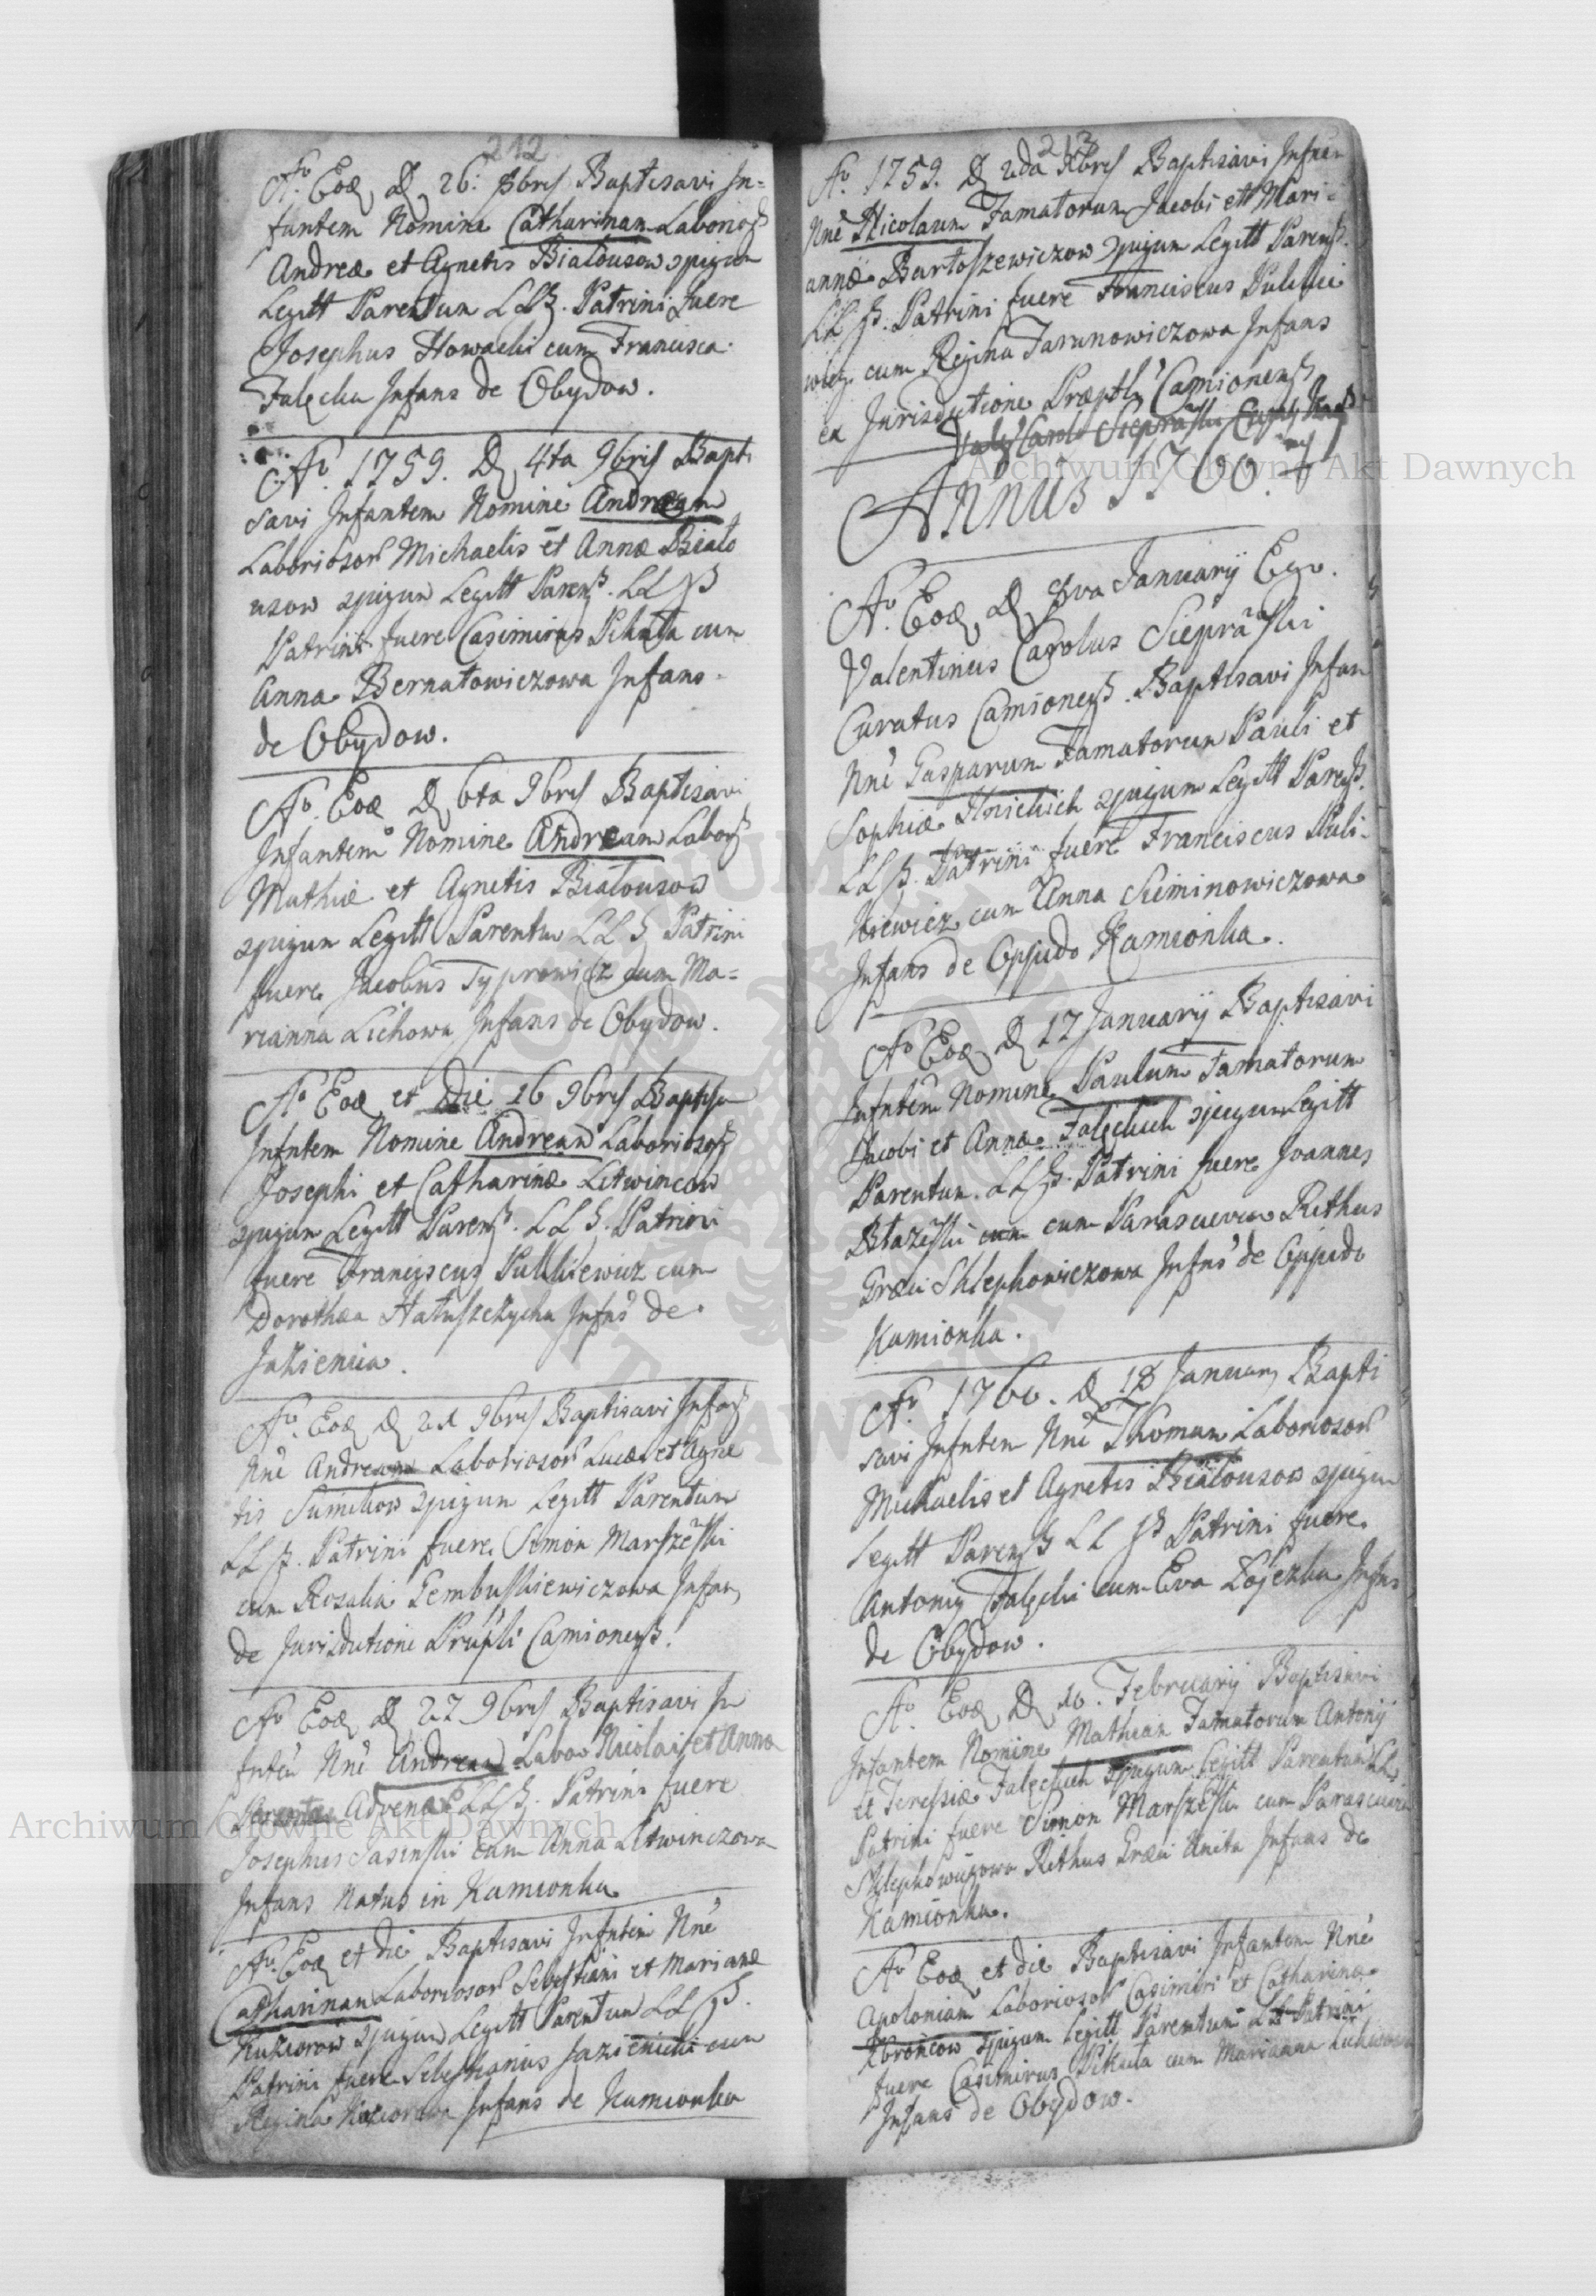 212
Ao. Eoḍ D 26: 8bris Baptisavi In=
fantem Nomine Catharinam Laborios
Andreæ et Agnetis Białousow spigun
Legitt Parentun LLB. Patrini fuere
Josephus Nowacki cum Francisca
Falęcka Infans de Obydow.
Ao. 1759. D 4ta 9bris Bapti
savi Infantem Nomine Andream
Laboriosor Michaelis et Annæ Biało
usow spigun Legitt Parens. LLB
Patrini fuere Casimirus Pikuta cum
Anna Bernatowiczowa Infans
de Obydow.
Ao. Eod D 6ta 9bris Baptisavi
Infantem Nomine Andream Labors
Mathiæ et Agnetis Białousow
spigun Legitt Parentu LLB Patrini
fuere Jacobus Typrowicz cum Ma=
rianna Lichowa Infans de Obydow.
Ao Eod et Die 16 9bris Baptisa
Infntem Nomine Andream Laborioso
Josephi et Catharinæ Litwincow
spigun Legitt Parens. LLB. Patrini
fuere Franciscus Pulikiewicz cum
Dorothea Infns de
Jazienica.
Ao. Eod D 21 9bris Baptisavi Infan
Nne Andream Laboriosor Lucæ et Agne
tis spigun Legitt Parentum
LLB. Patrini fuere Simon Marszeski
cum Rosalia Gembuskiewiczowa Infans
de Jurisdutione Præpli Camionens.
Ao Eod D 27 9bris Baptisavi In
fnten Nne Andream Labo Nicolai et Anna
Advenæ LLB. Patrini fuere
Josephus Sasinski cum Anna Litwinczowa
Infans Natus in Kamionka
Ao. Eod et die Baptisavi Infntem Nne
Catharinam Laboriosor Sebestiani et Marianæ
spigun Legitt Parentum LLB.
Patrini fuere Sebestianus Jazienicki cum
Regina Infans de Kamionka
213
Ao. 1759. D 2da Xbris Baptisavi Infan
Nne Nicolaum Famatorum Jacobi ett Mari=
annæ Bartoszewiczow spigun Legitt Parens.
LLB. Patrini fuere Franciscus Pulikie
wicz cum Regina Taranowiczowa Infans
ex Jurisdictione Præptli Camionens
Annus 1760.
Ao. Eod D 8va Januarij Ego.
Valentinus Carolus Siepraski
Curatus Camionens. Baptisavi Infan
Nne Gasparum Famatorum Pauli et
Sophiæ spigun Legitt Parens.
LLB. Patrini fuere Franciscus Puli=
kiewicz cum Anna Siminowiczowa
Infans de Oppido Kamionka.
Ao Eod D 17 Januarij Baptisavi
Infntem Nomine Paulum Famatorum
Jacobi et Annæ Falęckich spigun Legitt
Parentum. LLB. Patrini fuere Joannes
Błazeski cum cum Parascevia Rithus
Græci Shlephowiczowa Infns de Oppido
Kamionka.
Ao. 1760. D 18 January Bapti
savi Infntem Nne Thomam Laboriosor
Michaelis et Agnetis Białousow spigun
Legitt Parens LLB Patrini fuere
Antoniy Falęcki cum Eva Infns
de Obydow.
Ao. Eod D 10. Februarij Baptisavi
Infantem Nomine Mathian Famatorum Antonij
et Teressiæ Falęckich spigun Legitt Parentum LL
Patrini fuere Simon Marszeski cum Parascevia
Shlephowiczowa Rithus Græci Unita Infans de
Kamionka.
Ao Eod et die Baptisavi Infantem Nne
Apoloniam Laboriosor Casimiri et Catharinæ
spigum Legitt Parentum LL Patrini
fuere Casimirus Pikuta cum Marianna
Infans de Obydow.
Archiwum Główne Akt Dawnych
Archiwum Główne Akt Dawnych